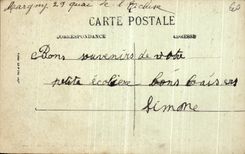 Margny 29 quai de l'Ecluse
CARTE POSTALE
CORRESPONDANCE ADRESSE
Bons souvenirs de votre
petite écolière bons baisers
Simone